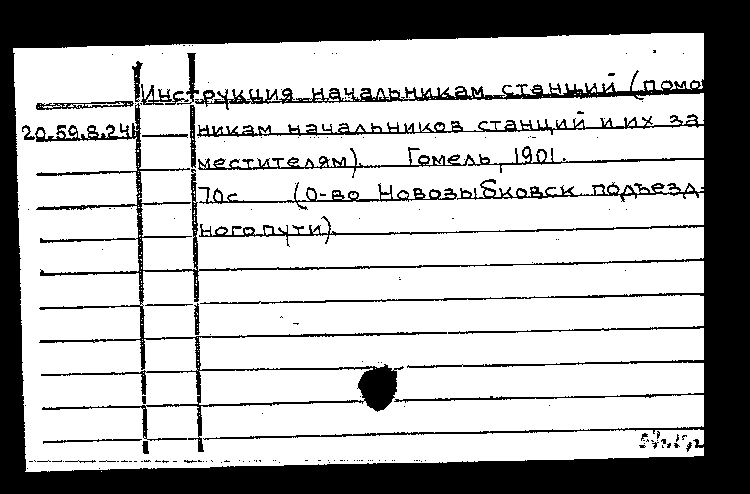 Инструкция начальникам станций (помо
20.59.8.24 никам начальников станций и их за
местителям). Гомель, 1901.
70с (О-во Новозыбковск подъезд-
ного пути).